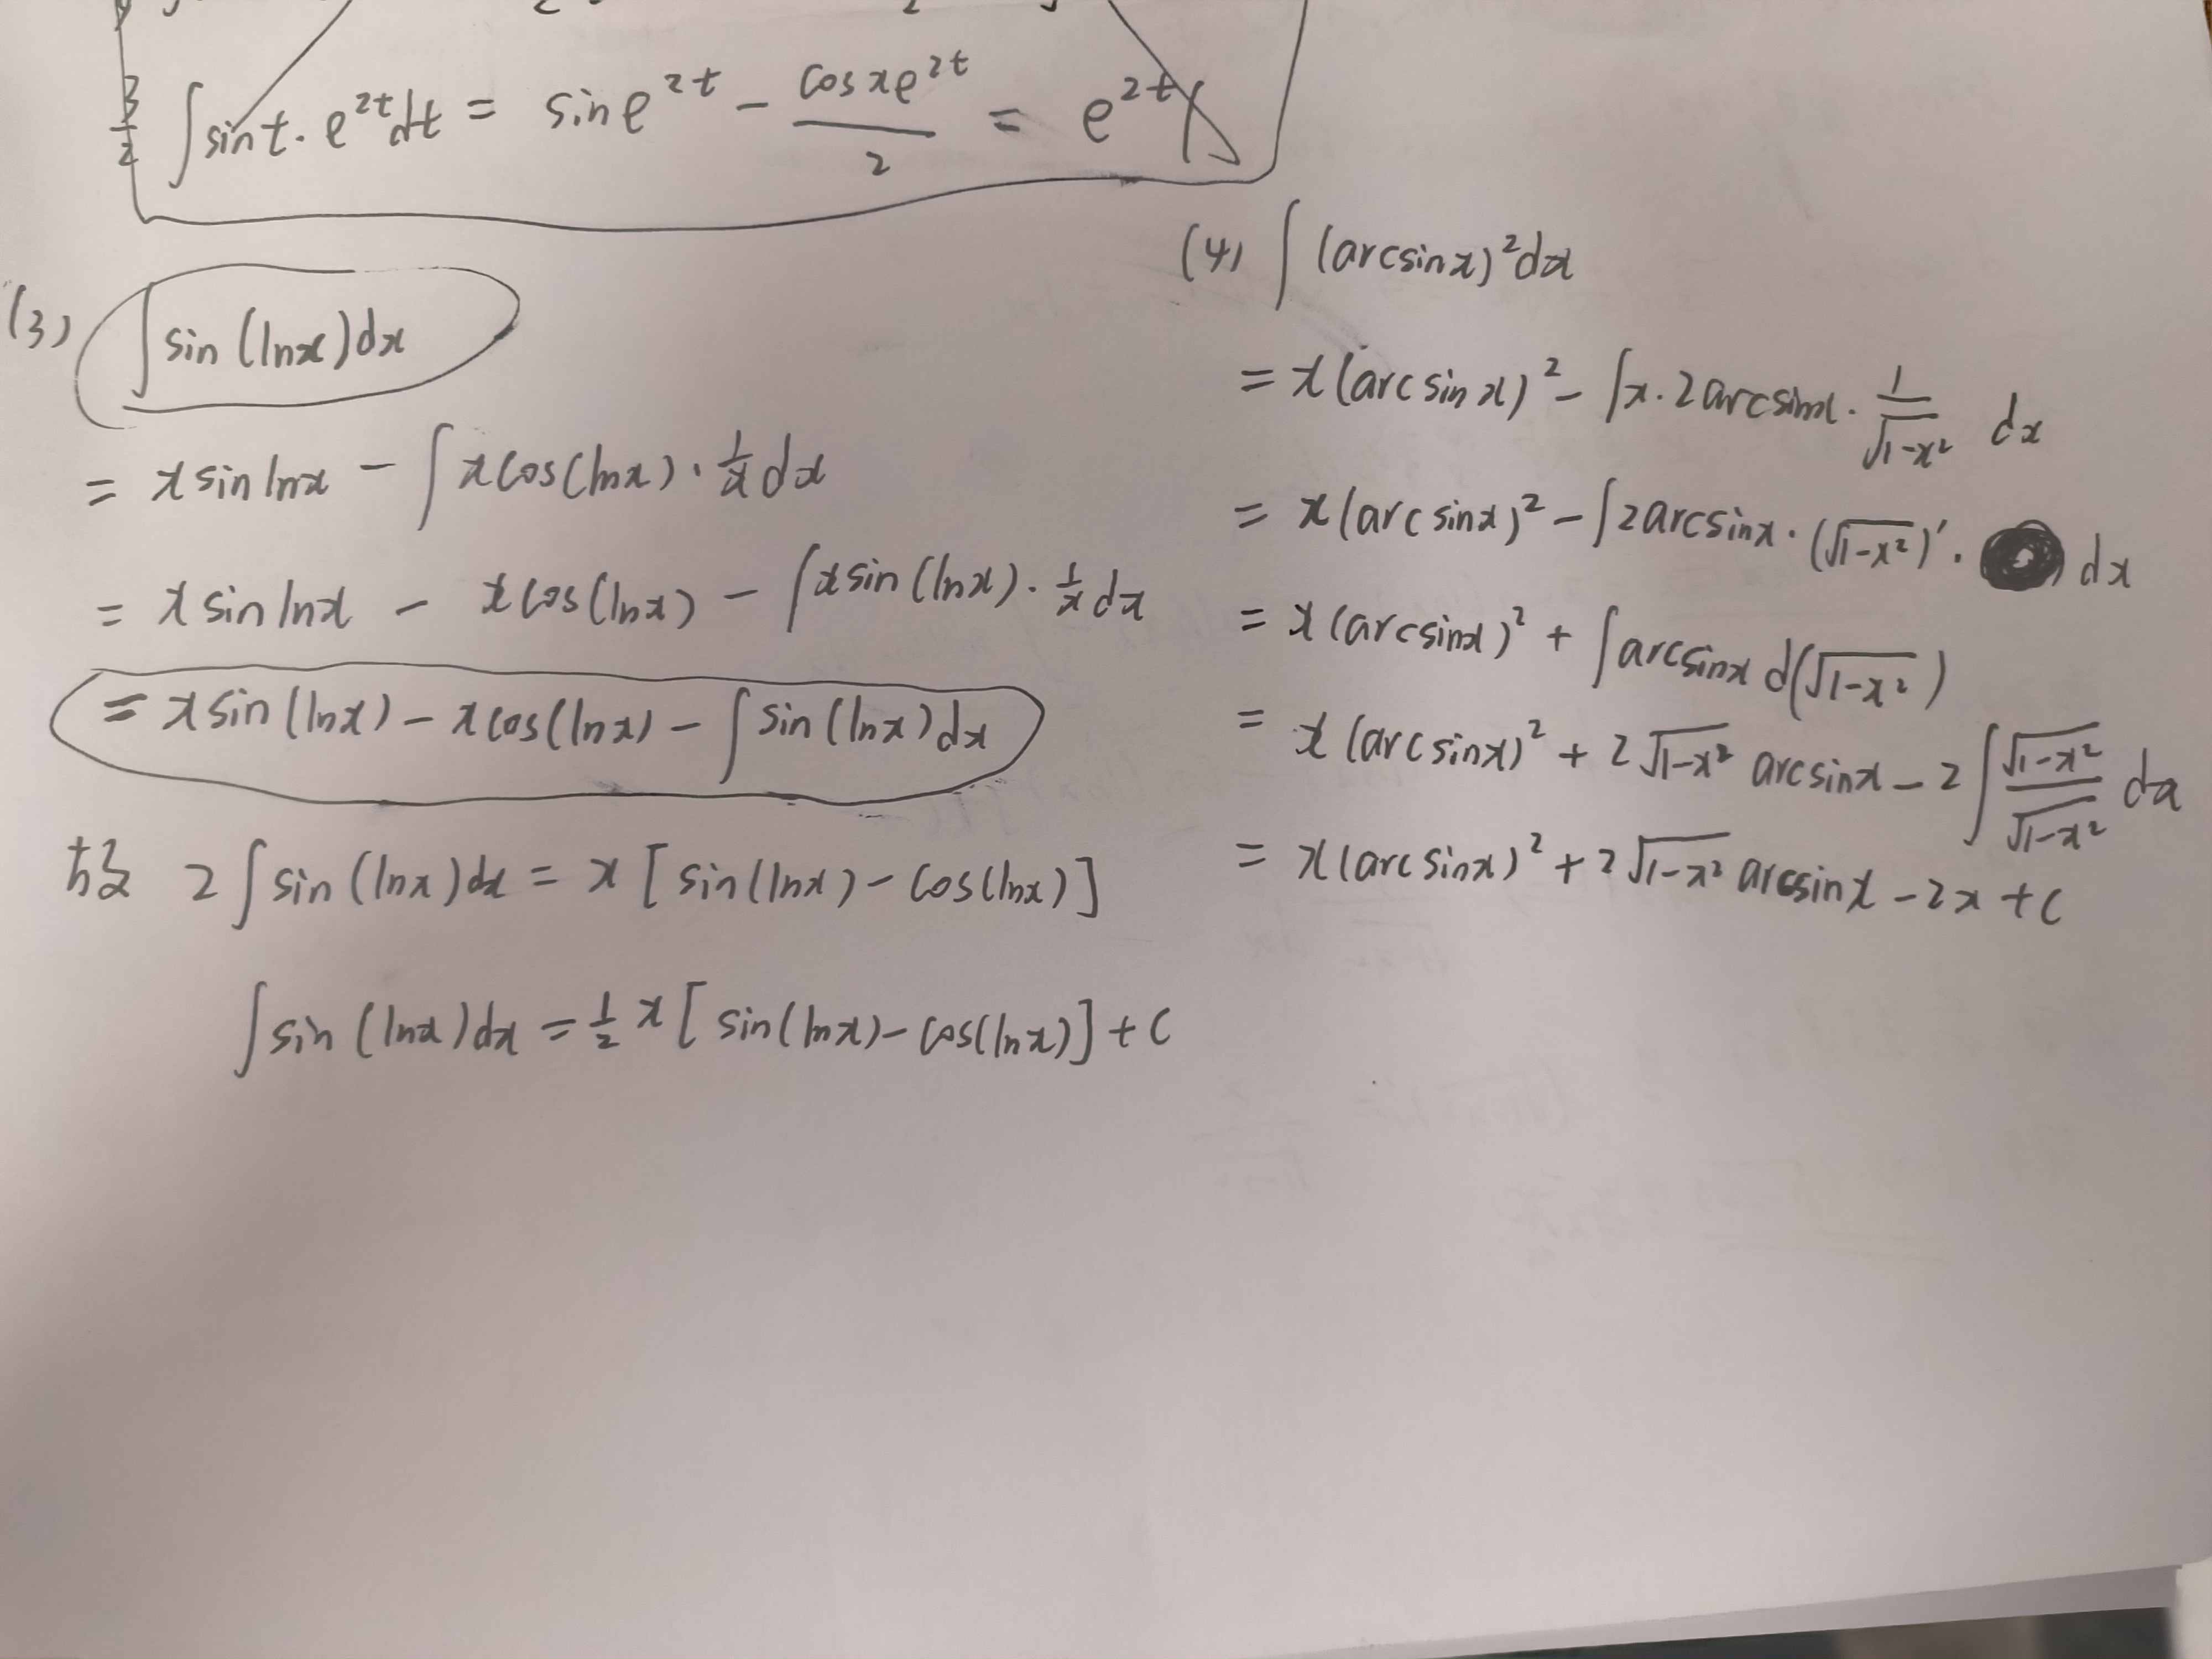 3/2 ∫sint·e^{2t}dt = sin e^{2t} - cosxe^{2t}/2 = e^{2t}(
(3) ∫sin(lnx)dx
= x sin lnx - ∫xcos(lnx)·1/x dx
= x sin lnx - xcos(lnx) - ∫xsin(lnx)·1/x dx
= x sin(lnx) - xcos(lnx) - ∫sin(lnx)dx
故 2∫sin(lnx)dx = x[sin(lnx) - cos(lnx)]
∫sin(lnx)dx = 1/2 x[sin(lnx) - cos(lnx)] + C
(4) ∫(arcsinx)²dx
= x(arcsinx)² - ∫x·2arcsinx·1/√(1-x²) dx
= x(arcsinx)² - ∫2arcsinx·(√(1-x²))'· dx
= x(arcsinx)² + ∫arcsinx d(√(1-x²))
= x(arcsinx)² + 2√(1-x²) arcsinx - 2∫√(1-x²)/√(1-x²) dx
= x(arcsinx)² + 2√(1-x²) arcsinx - 2x + C